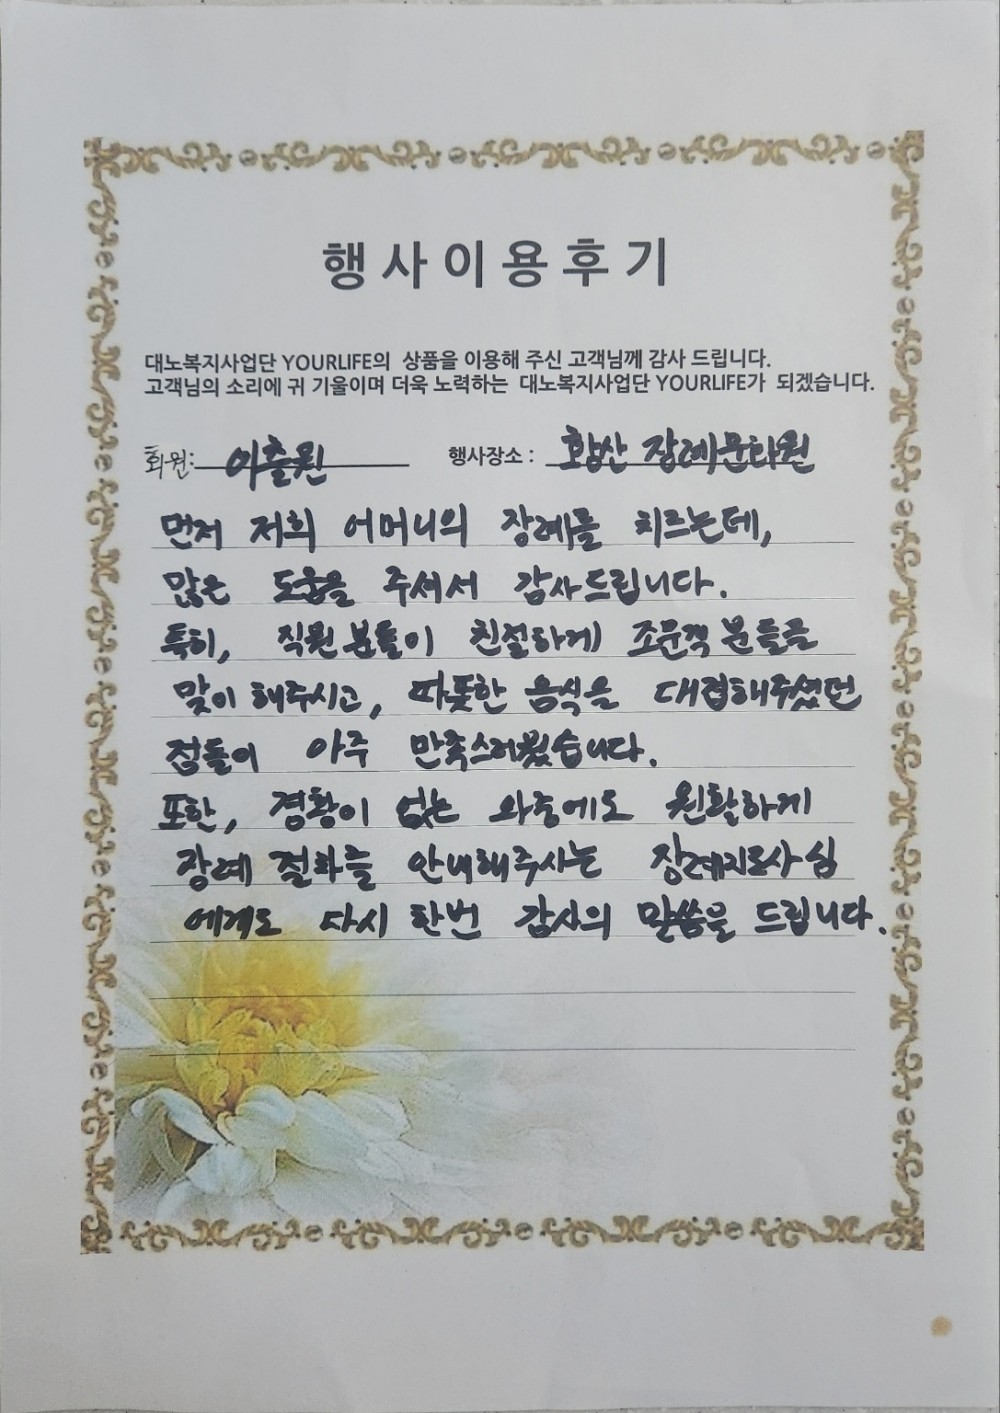 행사이용후기
대노복지사업단 YOURLIFE의 상품을 이용해 주신 고객님께 감사 드립니다.
고객님의 소리에 귀 기울이며 더욱 노력하는 대노복지사업단 YOURLIFE가 되겠습니다.
회원: 이출원 행사장소 : 황산 장례문화원
먼저 저희 어머니의 장례를 치르는데,
많은 도움을 주셔서 감사드립니다.
특히, 직원분들이 친절하게 조문객 분들을
맞이 해주시고, 따뜻한 음식을 대접해주셨던
점들이 아주 만족스러웠습니다.
또한, 경황이 없는 와중에도 원활하게
장례 절차를 안내해주시는 장례지도사님
에게도 다시 한번 감사의 말씀을 드립니다.